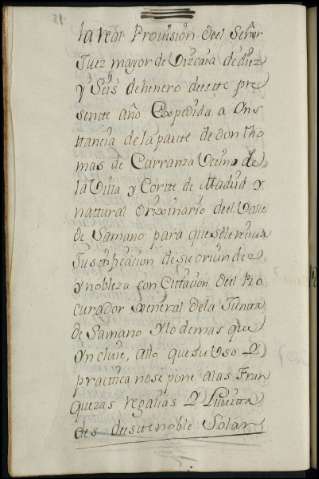 la real Provision del Señor
Juez mayor de Vizcaia de diez
y seis de henero de este pre
sente año Expedida a Yns
ttancia de la partte de don tho
mas de Carranza Vecino de
la Villa y Cortte de Madrid y
nattural originario del Valle
de Samano para que se le reciua
Justtificacion de su oriundez
y nobleza con Cittacion del Pro
curador General de la Juntta
de Samano Y lo demas que
Yncluie, dijo que su Uso Y
practtica no se pone a las Fran
quezas regalias Y Liuertta
des de este noble Solar